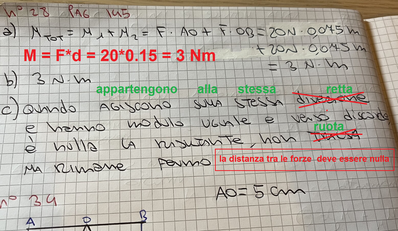 n° 28 PAG. 145
a) M TOT = M1 + M2 = F · AO + F · OB = 20N · 0,075 m
+ 20N · 0,075 m
= 3 N · m
M = F*d = 20*0.15 = 3 Nm
b) 3 N · m
appartengono alla stessa retta
c) QUANDO AGISCONO SULLA STESSA DIREZIONE
E HANNO MODULO UGUALE E VERSO
ruota
E NULLA LA RISULTANTE, NON
MA RIMANE FERMO
la distanza tra le forze deve essere nulla
AO = 5 cm
n° 34
A O B